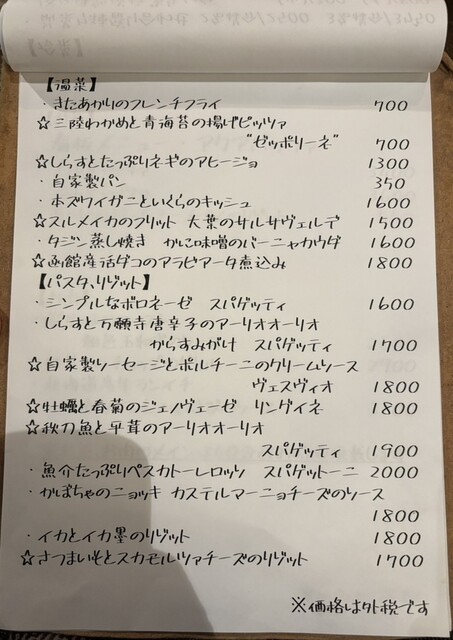 【温菜】
・きたあかりのフレンチフライ 700
☆三陸わかめと青海苔の揚げピッツァ
"ゼッポリーネ" 700
☆しらすとたっぷりネギのアヒージョ 1300
・自家製パン 350
・本ズワイガニといくらのキッシュ 1600
☆スルメイカのフリット 大葉のサルサヴェルデ 1500
・タジン蒸し焼き かに味噌のバーニャカウダ 1600
☆函館産活ダコのアラビアータ煮込み 1800
【パスタ、リゾット】
・シンプルなボロネーゼ スパゲッティ 1600
・しらすと万願寺唐辛子のアーリオオーリオ
からすみがけ スパゲッティ 1700
☆自家製ソーセージとポルチーニのクリームソース
ヴェスヴィオ 1800
☆牡蠣と春菊のジェノヴェーゼ リングイネ 1800
☆秋刀魚と平茸のアーリオオーリオ
スパゲッティ 1900
・魚介たっぷりペスカトーレロッソ スパゲットーニ 2000
・かぼちゃのニョッキ カステルマーニョチーズのソース
1800
・イカとイカ墨のリゾット 1800
☆さつまいもとスカモルツァチーズのリゾット 1700
※価格は外税です